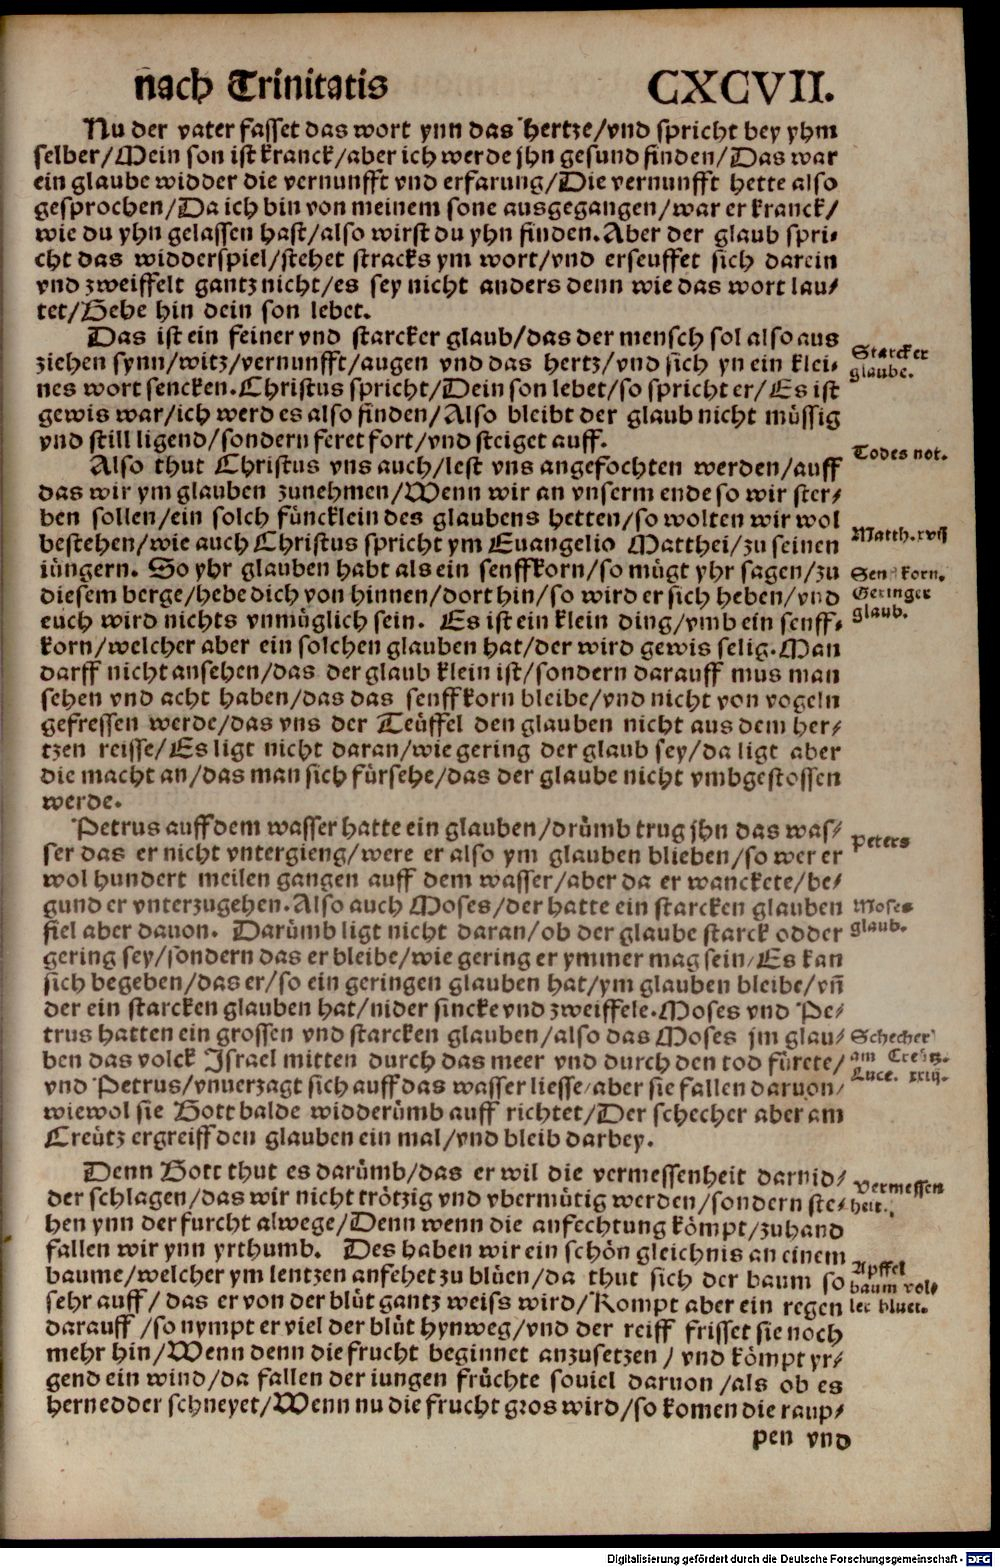 nach Trinitatis CXCVII.
Nu der vater fasset das wort ynn das hertze/vnd spricht bey yhm
selber/Mein son ist kranck/aber ich werde jhn gesund finden/Das war
ein glaube widder die vernunfft vnd erfarung/Die vernunfft hette also
gesprochen/Da ich bin von meinem sone ausgegangen/war er kranck/
wie du yhn gelassen hast/also wirst du yhn finden.Aber der glaub spri-
cht das widderspiel/stehet stracks ym wort/vnd erseuffet sich darein
vnd zweiffelt gantz nicht/es sey nicht anders denn wie das wort lau-
tet/Gehe hin dein son lebet.
Das ist ein feiner vnd starcker glaub/das der mensch sol also aus
ziehen synn/witz/vernunfft/augen vnd das hertz/vnd sich yn ein klei-
nes wort sencken.Christus spricht/Dein son lebet/so spricht er/Es ist
gewis war/ich werd es also finden/Also bleibt der glaub nicht müssig
vnd still ligend/sondern feret fort/vnd steiget auff.
Starcker
glaube.
Also thut Christus vns auch/lest vns angefochten werden/auff
das wir ym glauben zunehmen/Wenn wir an vnserm ende so wir ster-
ben sollen/ein solch füncklein des glaubens hetten/so wolten wir wol
bestehen/wie auch Christus spricht ym Euangelio Matthei/zu seinen
iüngern. So yhr glauben habt als ein senffkorn/so mügt yhr sagen/zu
diesem berge/hebe dich von hinnen/dort hin/so wird er sich heben/vnd
euch wird nichts vnmüglich sein. Es ist ein klein ding/vmb ein senff-
korn/welcher aber ein solchen glauben hat/der wird gewis selig.Man
darff nicht ansehen/das der glaub klein ist/sondern darauff mus man
sehen vnd acht haben/das das senffkorn bleibe/vnd nicht von vogeln
gefressen werde/das vns der Teüffel den glauben nicht aus dem her-
tzen reisse/Es ligt nicht daran/wie gering der glaub sey/da ligt aber
die macht an/das man sich fürsehe/das der glaube nicht vmbgestossen
werde.
Todes not.
Matth.xvij
Senfkorn.
Geringer
glaub.
Petrus auff dem wasser hatte ein glauben/drümb trug jhn das was-
ser das er nicht vntergieng/were er also ym glauben blieben/so wer er
wol hundert meilen gangen auff dem wasser/aber da er wanckete/be-
gund er vnterzugehen.Also auch Moses/der hatte ein starcken glauben
fiel aber dauon. Darümb ligt nicht daran/ob der glaube starck odder
gering sey/sondern das er bleibe/wie gering er ymmer mag sein/Es kan
sich begeben/das er/so ein geringen glauben hat/ym glauben bleibe/vñ
der ein starcken glauben hat/nider sincke vnd zweiffele.Moses vnd Pe-
trus hatten ein grossen vnd starcken glauben/also das Moses jm glau-
ben das volck Israel mitten durch das meer vnd durch den tod fürete/
vnd Petrus/vnuerzagt sich auff das wasser liesse/aber sie fallen daruon/
wiewol sie Gott balde widderümb auff richtet/Der schecher aber am
Creütz ergreiff den glauben ein mal/vnd bleib darbey.
Peters
Moses
glaub.
Schecher
am Creütz.
Luce. xxiij.
Denn Gott thut es darümb/das er wil die vermessenheit darnid-
der schlagen/das wir nicht trötzig vnd vbermütig werden/sondern ste-
hen ynn der furcht alwege/Denn wenn die anfechtung kömpt/zuhand
fallen wir ynn yrthumb. Des haben wir ein schön gleichnis an einem
baume/welcher ym lentzen anfehet zu blüen/da thut sich der baum so
sehr auff/ das er von der blüt gantz weiss wird/Kompt aber ein regen
darauff /so nympt er viel der blüt hynweg/vnd der reiff frisset sie noch
mehr hin/Wenn denn die frucht beginnet anzusetzen / vnd kömpt yr-
gend ein wind/da fallen der iungen früchte souiel daruon /als ob es
hernedder schneyet/Wenn nu die frucht gros wird/so komen die raup-
Vermessen
heit.
Apffel
baum vol-
ler bluet.
pen vnd
Digitalisierung gefördert durch die Deutsche Forschungsgemeinschaft - DFG